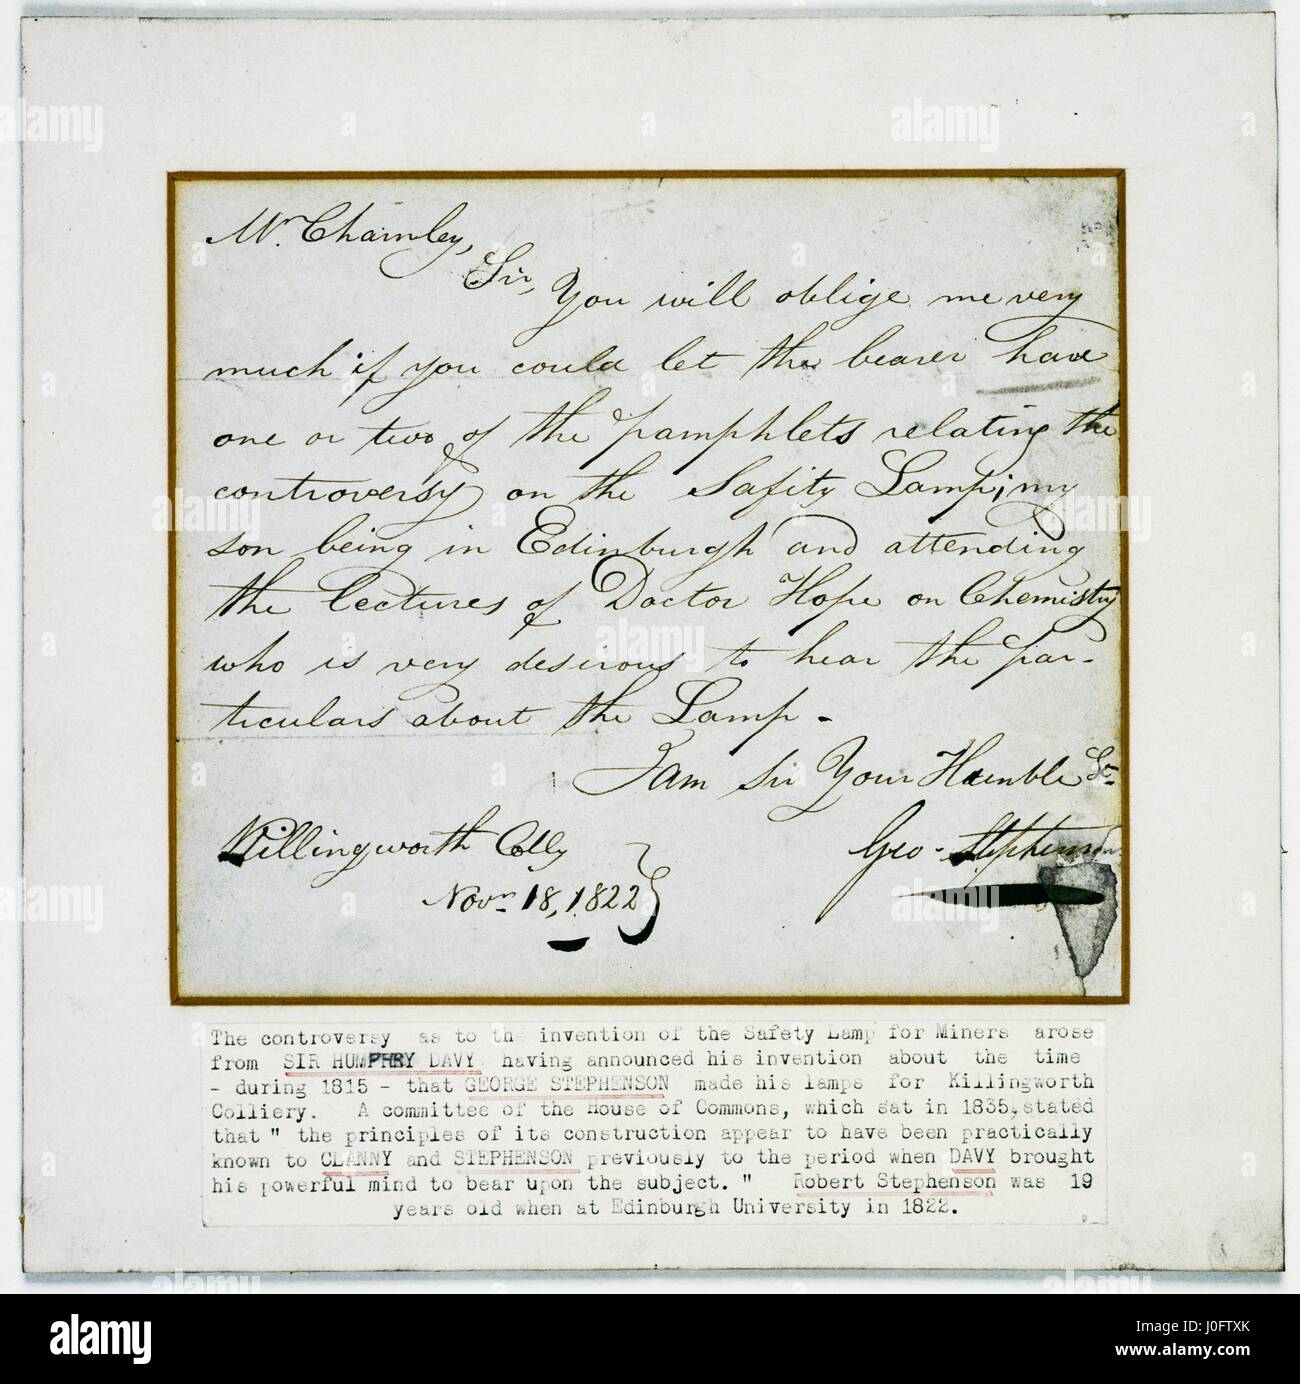 Mr. Charnley,
Sir, You will oblige me very
much if you could let the bearer have
one or two of the pamphlets relating the
controversy on the Safity Lamp; my
son being in Edinburgh and attending
the lectures of Doctor Hope on Chemistry
who is very desirous to hear the par-
ticulars about the Lamp -
I am Sir Your Humble St.
Killingworth Colly
Geo. Stephenson
Novr. 18, 1822
The controversy as to the invention of the Safety Lamp for Miners arose
from SIR HUMPHRY DAVY having announced his invention about the time
- during 1815 - that GEORGE STEPHENSON made his lamps for Killingworth
Colliery. A committee of the House of Commons, which sat in 1835, stated
that " the principles of its construction appear to have been practically
known to CLANNY and STEPHENSON previously to the period when DAVY brought
his powerful mind to bear upon the subject. " Robert Stephenson was 19
years old when at Edinburgh University in 1822.
alamy
Image ID: J0FTXK
www.alamy.com